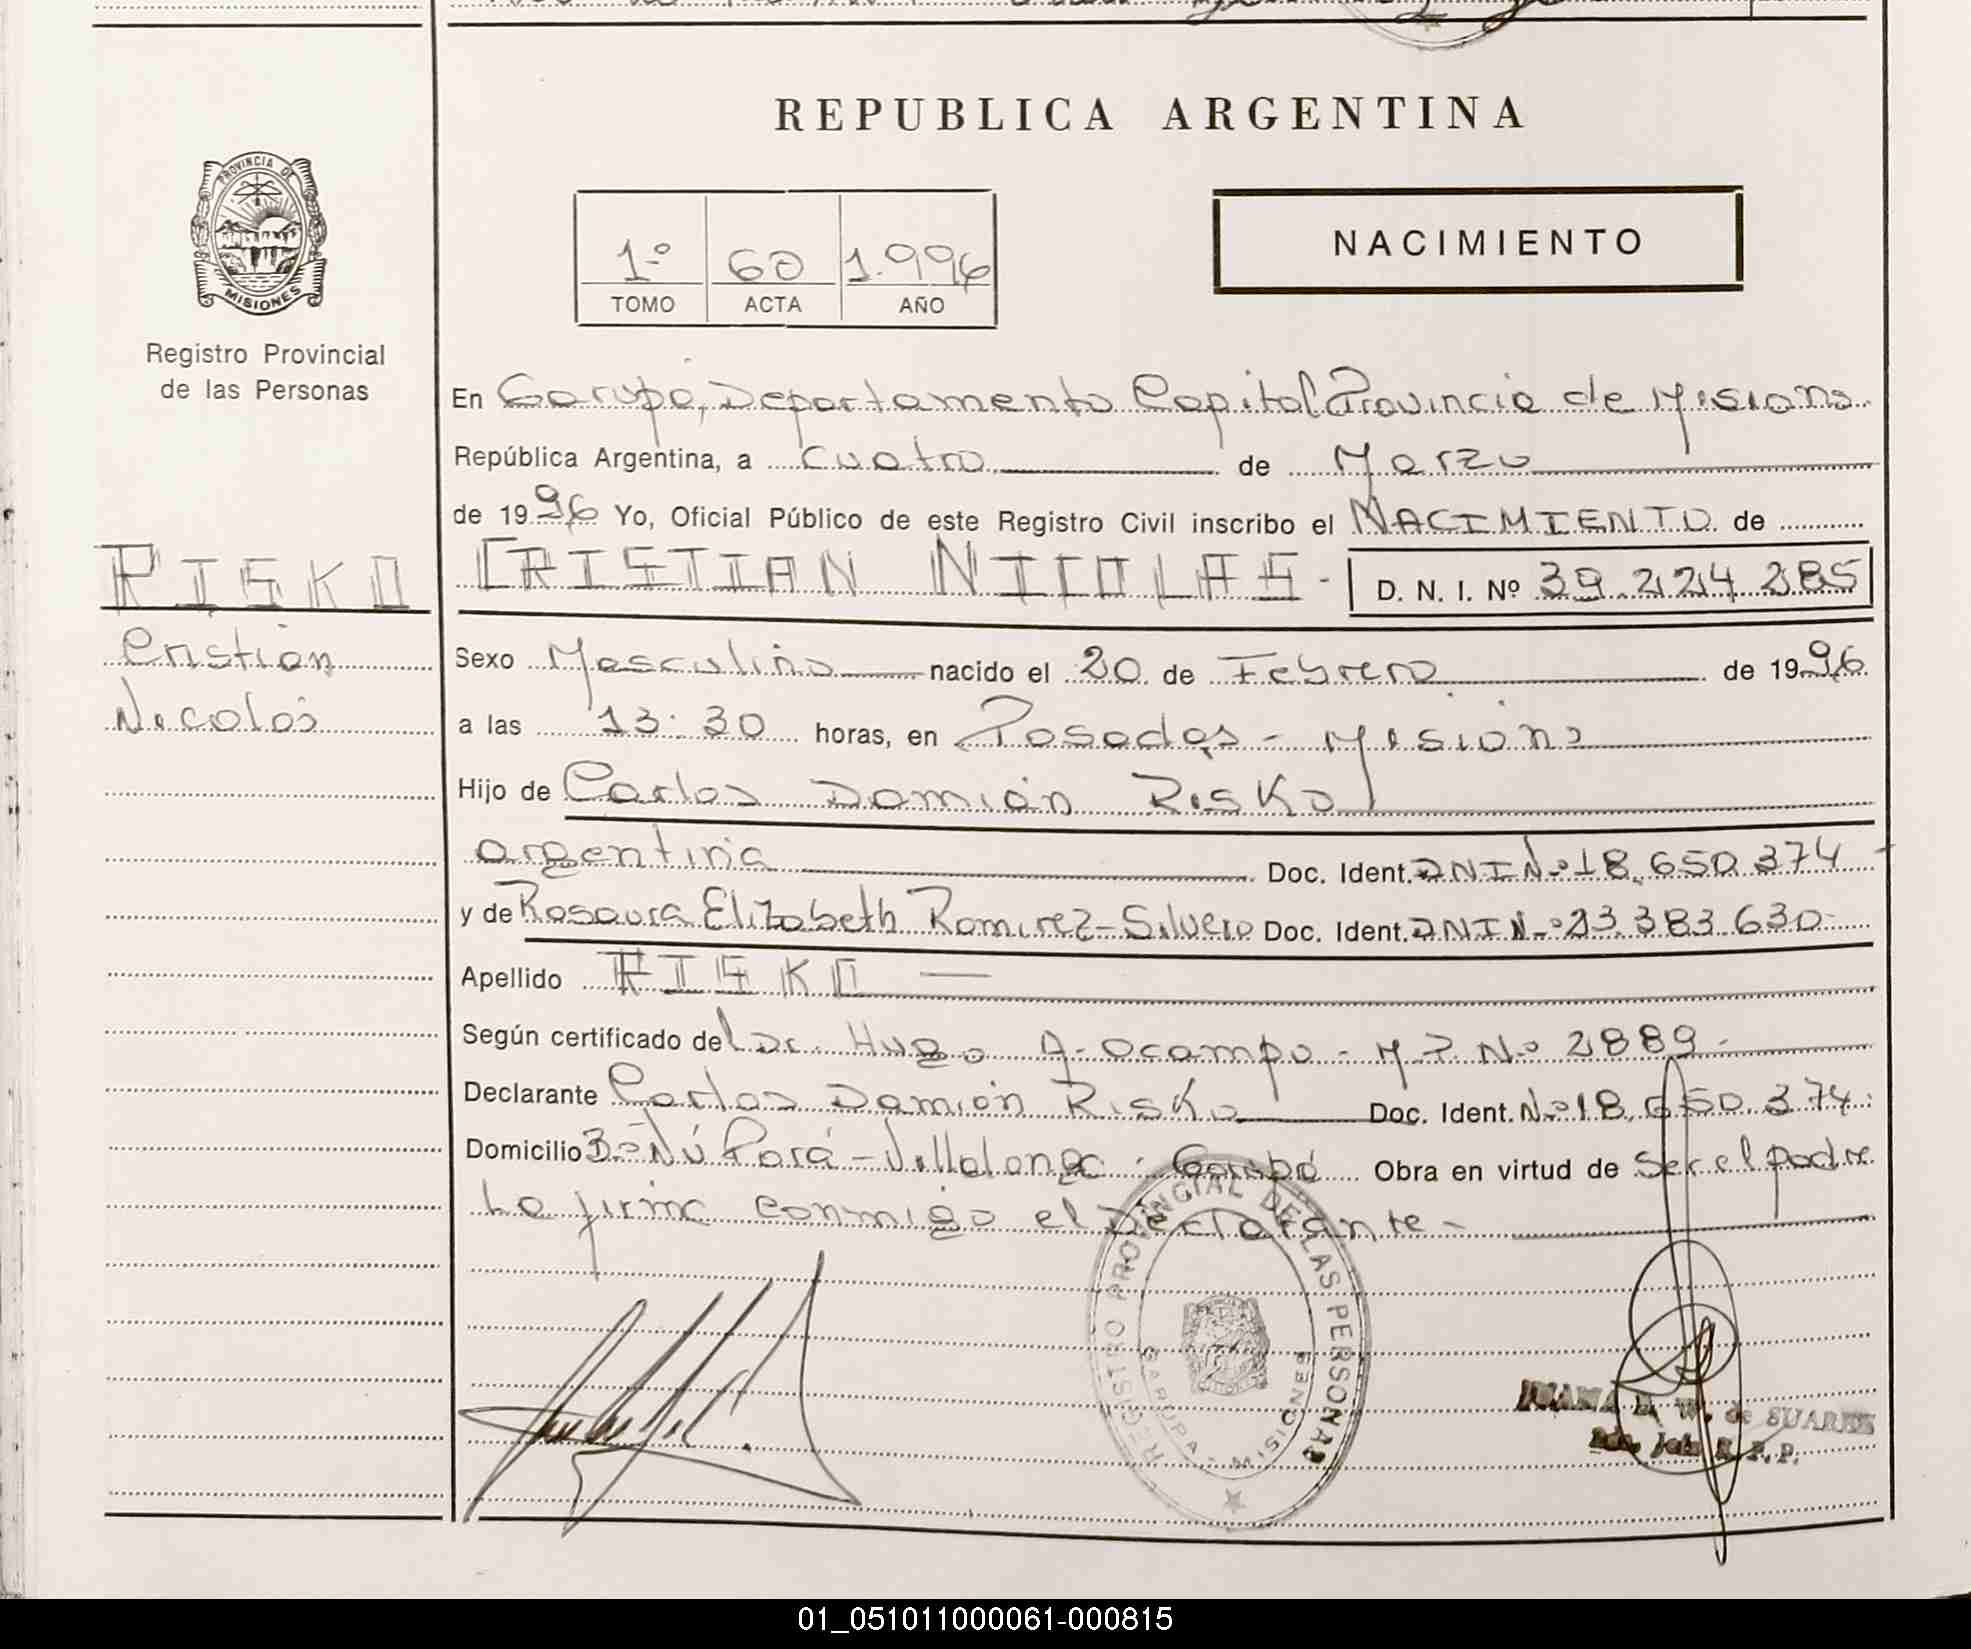 REPUBLICA ARGENTINA
PROVINCIA DE
MISIONES
Registro Provincial
de las Personas
1º 60 1.996
TOMO ACTA AÑO
NACIMIENTO
En Garupá, Departamento Capital Provincia de Misiones
República Argentina, a cuatro de Marzo
de 1996 Yo, Oficial Público de este Registro Civil inscribo el NACIMIENTO de
RISKO
Cristian
Nicolás
CRISTIAN NICOLAS - D. N. I. Nº 39.224.285
Sexo Masculino nacido el 20 de Febrero de 1996
a las 13:30 horas, en Posadas - Misiones
Hijo de Carlos Damián Risko
argentina Doc. Ident. DNI Nº 18.650.374
y de Rosaura Elizabeth Ramirez - Silvero Doc. Ident. DNI Nº 23.383.630
Apellido RISKO
Según certificado del Dr. Hugo A. Ocampo - M P Nº 2889 -
Declarante Carlos Damián Risko Doc. Ident. Nº 18.650.374
Domicilio Bº Ñú Porá - Villalonga - Garupá Obra en virtud de ser el padre
La firma conmigo el Declarante -
REGISTRO PROVINCIAL DE LAS PERSONAS
GARUPA - MISIONES
JUANA W. de SUAREZ
R. P. P.
01_051011000061-000815